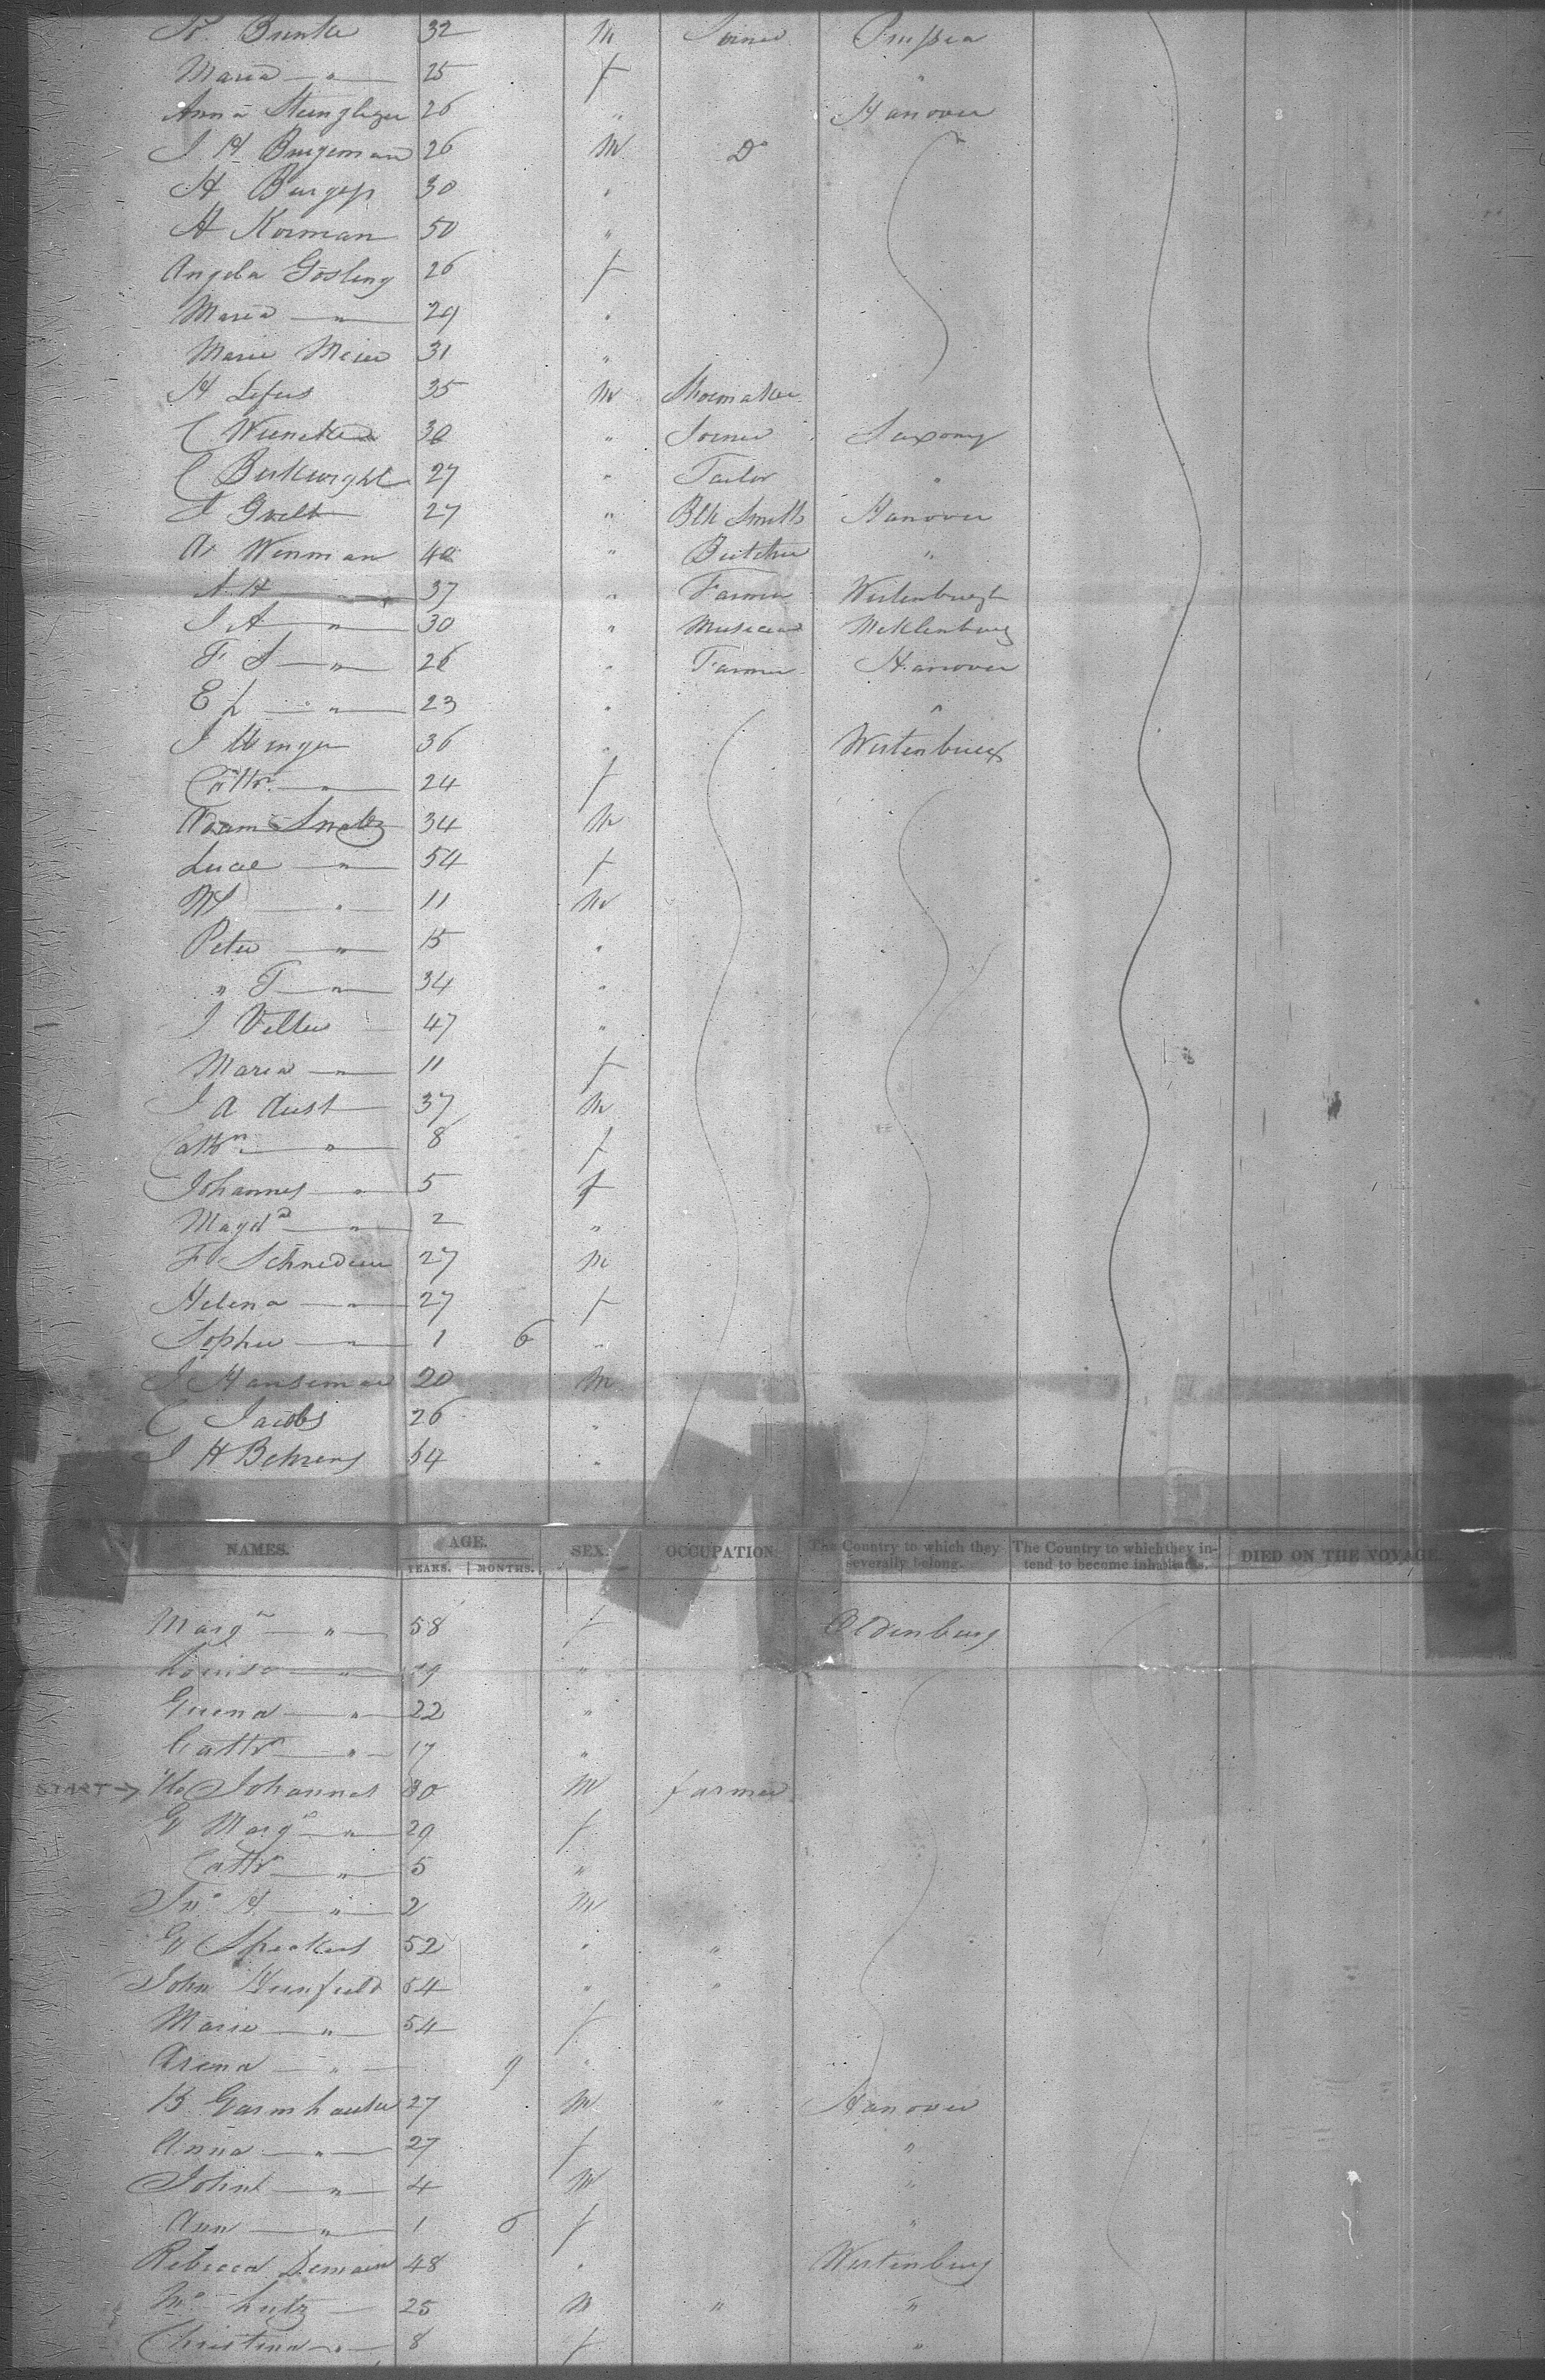 Brinke 32 M Joiner Prussia
Maria — " — 25 f "
Anna 26 " Hanover
J. H. Brugeman 26 M Do
H Burgess 30 "
H Korman 50 "
Angela Gosling 26 f
Maria — " — 29 "
Marie Meier 31 "
H Lefus 35 M Shoemaker
C Wieneke 30 " Joiner Saxony
C 27 " Tailor "
J 27 " Blk Smith Hanover
A Winman 40 " Butcher "
A. H — " — 37 " Farmer
J A — " — 30 " Musician Mecklenburg
F J — " — 26 " Farmer Hanover
E L — " — 23 " "
J 36 "
Cathn — " — 24 f
Adam Smaltz 34 M
Luce — " — 54 f
— " — 11 M
Peter — " — 15 "
" T — " — 34 "
J Velter 47 "
Maria — " — 11 f
J A Aust 37 M
Cathn — " — 8 f
Johannes — " 5 f
Magda — " 2 "
F Schneider 27 M
Helena — " — 27 f
Sophie — " — 1 6 "
J Hanseman 20 M
C Jacobs 26 "
J H Behrens 54 "
NAMES. AGE. YEARS. MONTHS. SEX. OCCUPATION The Country to which they severally belong. The Country to which they intend to become inhabitants. DIED ON THE VOYAGE
Marga — " — 58 f Oldenburg
Louisa — " — "
Gerena — " — 22 "
Cathn — " — 17 "
START → Johannes 30 M farmer
G Marga — " — 29 f
Cathn — " — 5 "
Jno H — " — 2 M
G Speckert 52 " "
John 54 " "
Marie — " — 54 f
Arena — " — 9 "
B. Garmhauter 27 M " Hanover
Anna — " — 27 f "
John — " — 4 M "
Ann — " — 1 6 f "
Rebecca 48 "
Lutz — 25 M " "
Christina — " — 8 f "